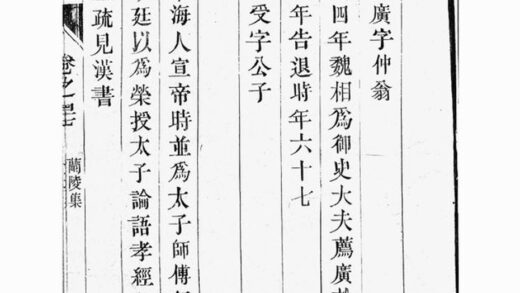 廣字仲翁
四年魏相爲御史大夫薦廣
年告退時年六十七
受字公子
海人宣帝時並爲太子師傅
廷以爲榮授太子論語孝經
疏見漢書
卷之
蘭陵集